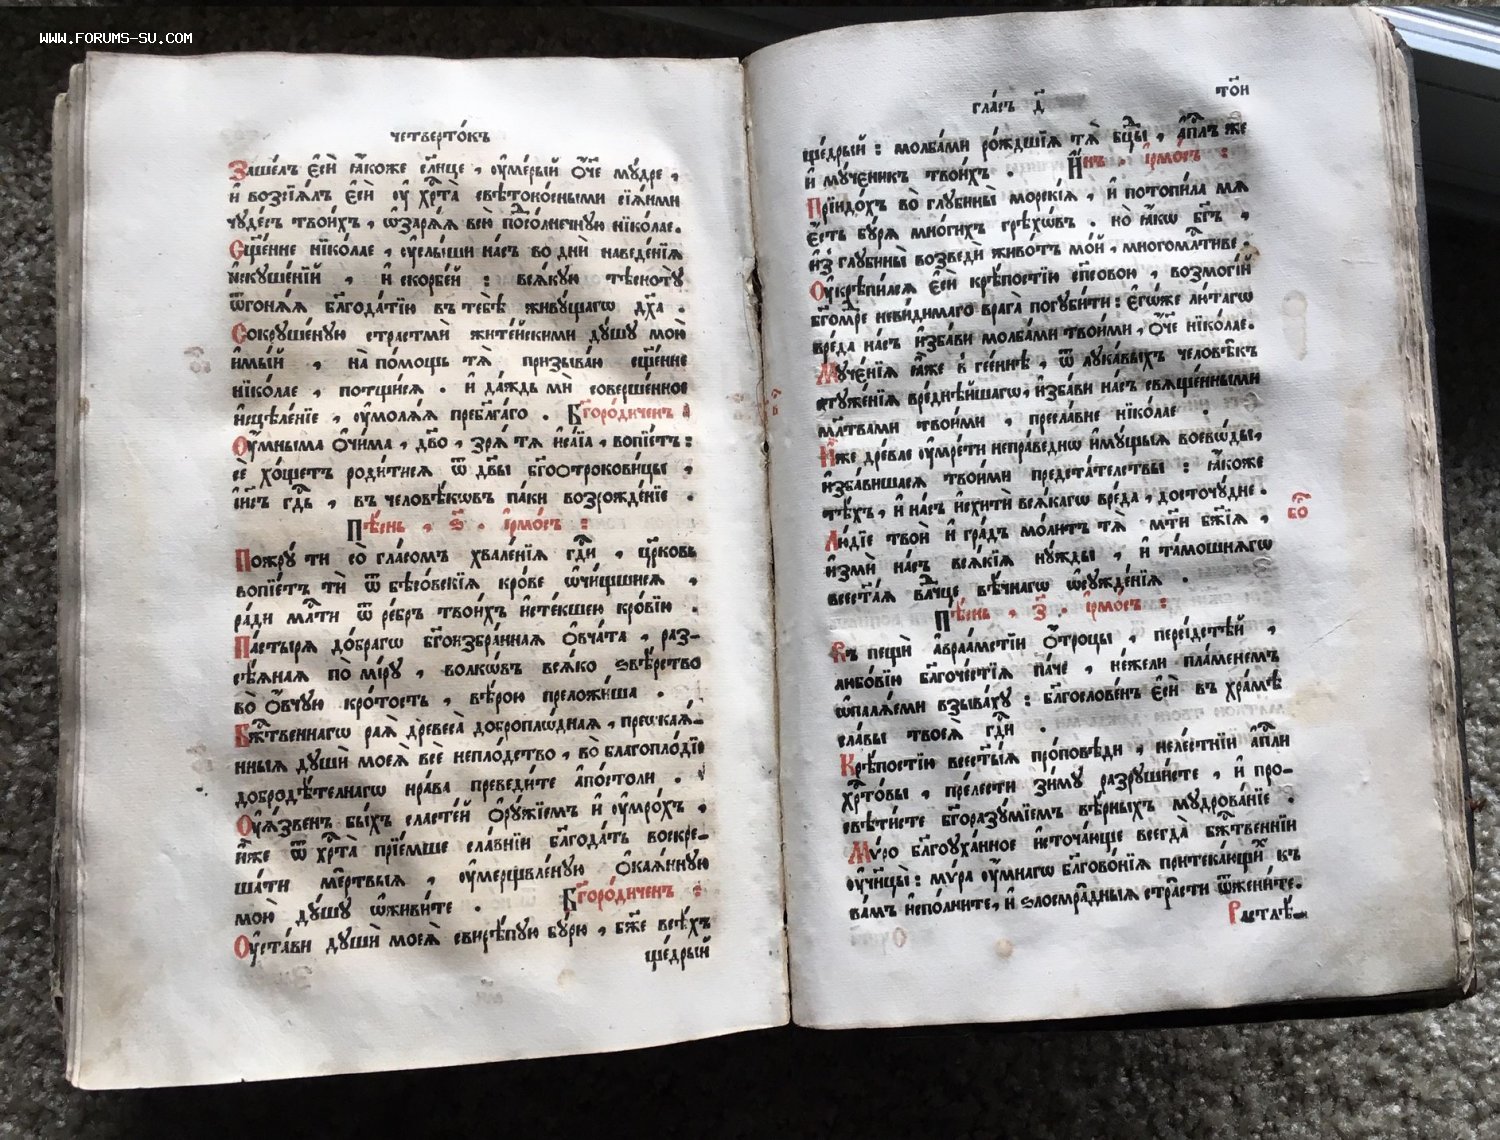 WWW.FORUMS-SU.COM
четверто́къ
Зашє́лъ є҆сѝ ꙗ҆́коже сл҃нце , ᲂу҆ме́рый ѻ҆́ч҃е мꙋ́дре ,
и҆ возсїѧ́лъ є҆сѝ ᲂу҆ хрⷭ҇та̀ свѣтоно́сными сїѧ́ньми
чꙋде́съ твои́хъ , ѡ҆зарѧ́ѧ всю̀ по́солнечнꙋю нїко́лае.
Сщ҃е́нне нїко́лае , ᲂу҆слы́ши на́съ во дни̑ наведе́нїѧ
и҆скꙋше́нїй , и҆ скорбе́й : всѧ́кꙋю тѣснотꙋ̀
ѿгонѧ́ѧ бл҃года́тїю въ тебѣ̀ живꙋ́щагѡ дх҃а .
Сокрꙋше́нꙋю страстьмѝ жите́йскими дꙋ́шꙋ мою̀
и҆мы́й , на по́мощь тѧ̀ призыва́ю сщ҃е́нне
нїко́лае , потщи́сѧ . и҆ да́ждь мѝ соверше́нное
и҆сцѣле́нїе , ᲂу҆молѧ́ѧ пребл҃га́го . Бг҃оро́диченъ
Оу҆́мныма ѻ҆чи́ма , дв҃о , зрѧ́ тѧ и҆са́їа , вопїе́тъ :
сѐ хо́щетъ роди́тисѧ ѿ дв҃ы бг҃оѻтрокови́цы ,
і҆и҃съ гдⷭ҇ь , въ человѣ́кѡвъ па́ки возрожде́нїе .
Пѣ́снь , ѕ҃ . і҆рмо́съ :
Пожрꙋ́ ти со гла́сомъ хвале́нїѧ гдⷭ҇и , цр҃ковь
вопїе́тъ тѝ ѿ бѣсо́вскїѧ кро́ве ѡ҆чи́щшисѧ ,
ра́ди млⷭ҇ти ѿ ре́бръ твои́хъ и҆сте́кшею кро́вїю .
Па́стырѧ до́брагѡ бг҃оизбра́ннаѧ ѻ҆вча́та , раз-
сѣ́ѧнаѧ по мі́рꙋ , волкѡ́въ всѧ́ко ѕвѣ́рство
во ѻ҆́вчꙋю кро́тость , вѣ́рою преложи́ша .
Бж҃твеннагѡ раѧ̀ древеса̀ доброплѡ́днаѧ , преѡкаѧ́-
нныѧ дꙋшѝ моеѧ̀ всѐ непло́дство , во благопло́дїе
добродѣ́телнагѡ нра́ва преведи́те а҆по́столи .
Оу҆ѧ́звенъ бы́хъ сласте́й ѻ҆рꙋ́жїемъ и҆ ᲂу҆мро́хъ ,
и҆̀же ѿ хрⷭ҇та̀ прїе́мше сла́внїи бл҃года́ть воскре-
ша́ти ме́ртвыѧ , ᲂу҆мерщвле́нꙋю ѻ҆каѧ́ннꙋю
мою̀ дꙋ́шꙋ ѡ҆живи́те . Бг҃оро́диченъ :
Оу҆ста́ви дꙋшѝ моеѧ̀ свирѣ́пꙋю бꙋ́рю , бж҃е всѣ́хъ
ще́дрый
гла́съ д҃
то́й
ще́дрый : молба́ми ро́ждшїѧ тѧ̀ бцⷣы , а҆пⷭ҇лъ же
и҆ мꙋ́ченикъ твои́хъ . И҆́нъ . і҆рмо́съ :
Прїидо́хъ во глꙋбины̀ морскі́ѧ , и҆ потопи́ла мѧ
є҆́сть бꙋ́рѧ мно́гихъ грѣхѡ́въ . но ꙗ҆́кѡ бг҃ъ ,
и҆з̾ глꙋбины̀ возведѝ живо́тъ мо́й , многомлⷭ҇тиве .
Оу҆крѣпи́лсѧ є҆сѝ крѣ́постїю сп҃совою , возмогі́й
бг҃омꙋ́дре неви́димаго врага̀ погꙋби́ти : є҆гѡ́же лю́тагѡ
вре́да на́съ и҆зба́ви молба́ми твои́ми , ѻ҆́ч҃е нїко́лае.
Мꙋче́нїѧ ꙗ҆́же в гее́ннѣ , ѿ лꙋка́выхъ человѣ̑къ
стꙋже́нїѧ вредне́йшагѡ , и҆зба́ви на́съ свѧще́нными
мл҃твами твои́ми , пресла́вне нїко́лае .
И҆́же дре́вле ᲂу҆мре́ти непра́веднѡ и҆мꙋ́щыѧ воево́ды,
и҆зба́вишасѧ твои́ми предста́телствы : ꙗ҆́коже
тѣ́хъ , и҆ на́съ и҆схитѝ всѧ́кагѡ вре́да , досточꙋ́дне .
Лю́дїе твоѝ и҆ гра́дъ мо́литъ тѧ̀ мт҃и бж҃їѧ ,
и҆змѝ на́съ всѧ́кїѧ нꙋ́жды , и҆ та́мошнѧгѡ
всест҃а́ѧ влⷣчце вѣ́чнагѡ ѡ҆сꙋжде́нїѧ .
бо҃
Пѣ́снь , з҃ . і҆рмо́съ :
Въ пещѝ а҆враа́мстїи ѻ҆́троцы , персі́дстѣй ,
любо́вїю бл҃гоче́стїѧ па́че , не́жели пла́менемъ
ѡ҆палѧ́еми взыва́хꙋ : бл҃гослове́нъ є҆сѝ въ хра́мѣ
сла́вы твоеѧ̀ гдⷭ҇и .
Крѣ́постїю всест҃ы́ѧ про́поведи , неле́стнїи а҆пⷭ҇ли
хрⷭ҇то́вы , пре́лести зи́мꙋ разрꙋши́сте , и҆ про-
свѣти́сте бг҃оразꙋ́мїемъ вѣ́рныхъ мꙋдрова́нїе .
Мѵ́ро бл҃гоꙋха́нное и҆сточа́юще всегда̀ бж҃твеннїи
ᲂу҆чн҃цы : мѵ́ра ᲂу҆́мнагѡ бл҃гово́нїѧ притека́ющихъ къ
ва́мъ и҆спо́лните, и҆ ѕлосмра́дныѧ стра̑сти ѿжени́те.
Растлѣ-